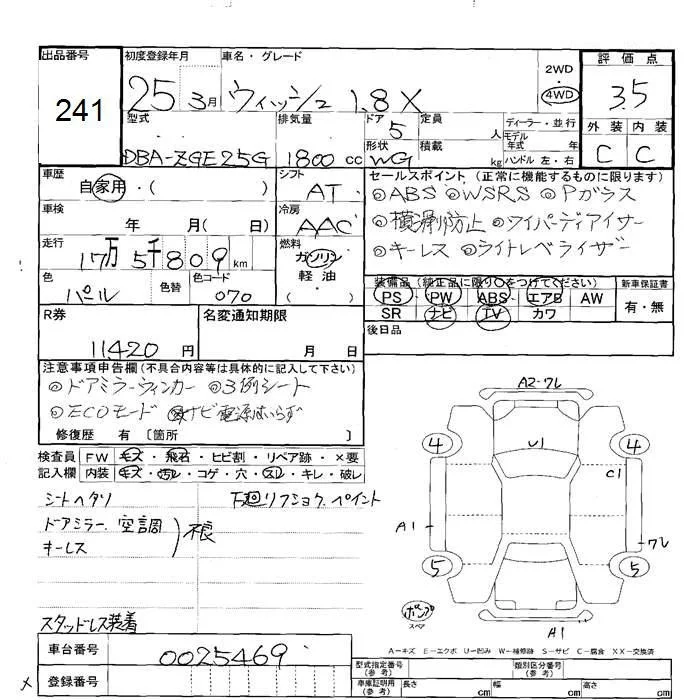 出品番号 初度登録年月 車名・グレード 2WD 評価点
241 25年 3月 ウィッシュ 1.8X 4WD 3.5
型式 排気量 ドア 定員 ディーラー・並行 外装 内装
5 人 モデル年式 年
DBA-ZGE25G 1800cc 形状 積載 C C
WG kg ハンドル 左・右
車歴 シフト セールスポイント(正常に機能するものに限ります)
自家用・( ) AT ◎ABS ◎WSRS ◎Pガラス
車検 冷房 ◎横滑り防止 ◎ワイパーディアイサー
年 月( 日) AAC ◎キーレス ◎ライトレベライザー
走行 燃料
17万5千809km ガソリン
軽油
( )
色 色替 色コード 装備品(純正品に限り○をつけてください) 新車保証書
パール 070 PS PW ABS エアB AW 有・無
SR ナビ TV カワ
R券 名変通知期限 後日品
11420円 月 日
注意事項申告欄(不具合内容等は具体的に記入して下さい)
◎ドアミラーウィンカー ◎3例シート
◎ECOモード ナビ電源はいらず
修復歴 有〔箇所 〕
検査員 FW キズ・飛石・ヒビ割・リペア跡・×要
記入欄 内装 キズ・汚レ・コゲ・穴・スレ・キレ・破レ
シートヘタリ 下廻リフショク.ペイント
ドアミラー.空調 不良
キーレス
スタッドレス装着
A2・ワレ
4 U1 4
C1
A1 ワレ
5 5
ポンプ
スペア A1
A-キズ E-エクボ U-凹み W-補修跡 S-サビ C-腐食 XX-交換済
車台番号 0025469 型式指定番号(参考) 類別区分番号(参考)
× 登録番号 車庫証明用(参考) 長さ cm 幅 cm 高さ cm